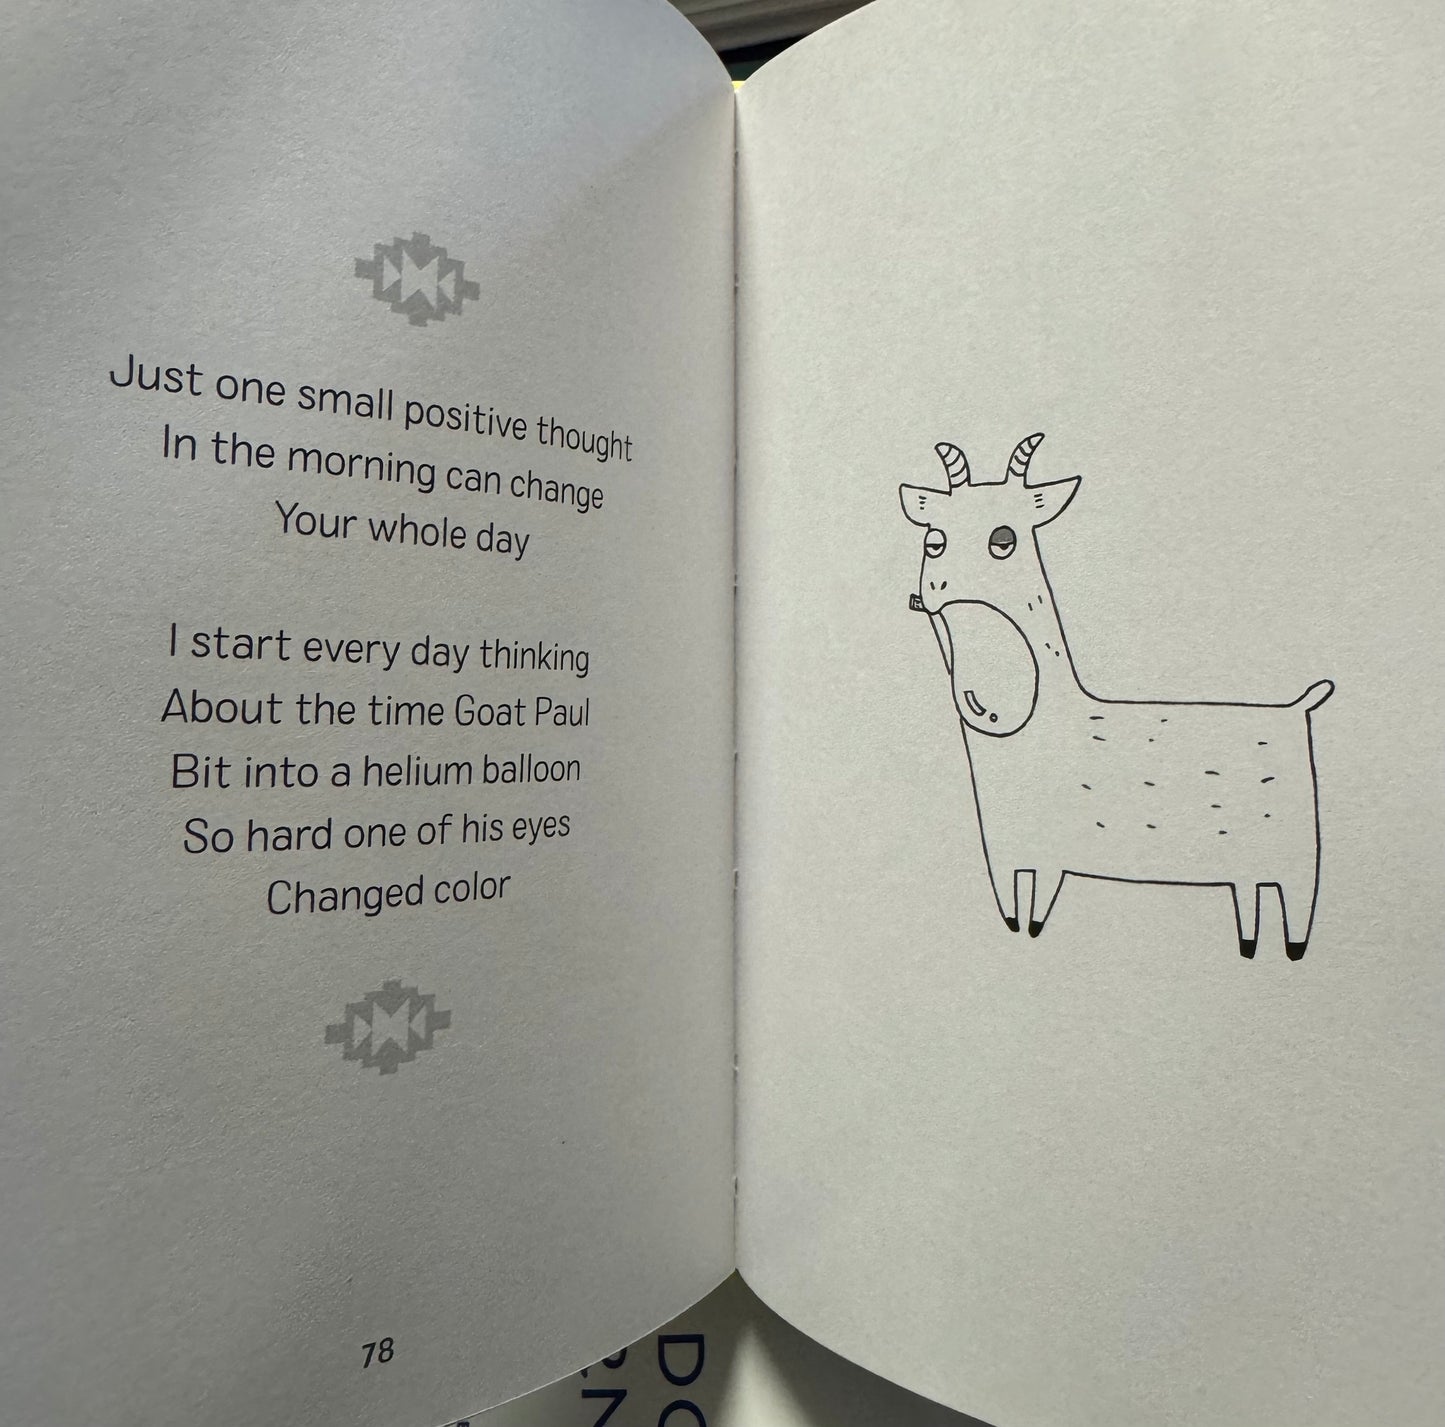 Just one small positive thought
In the morning can change
Your whole day
I start every day thinking
About the time Goat Paul
Bit into a helium balloon
So hard one of his eyes
Changed color
78
DO